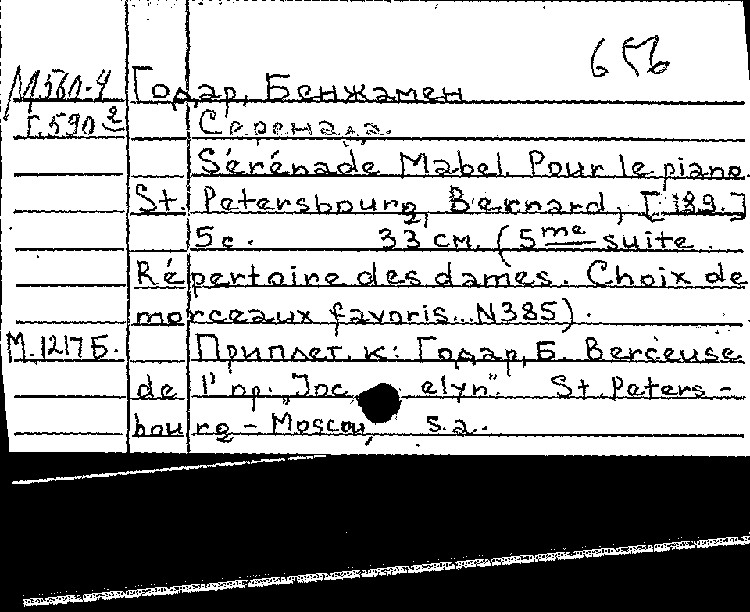 656
М560-4 Годар, Бенжамен
Г.590 2 Серенада.
Sérénade Mabel. Pour le piano.
St. Petersbourg, Bernard, [189.]
5 с. 33 см. (5me suite.
Répertoire des dames. Choix de
morceaux favoris... N385).
М.1217Б. Приплет. к: Годар, Б. Berceuse
de l'op. "Jocelyn". St. Peters-
bourg - Moscou, s.a.